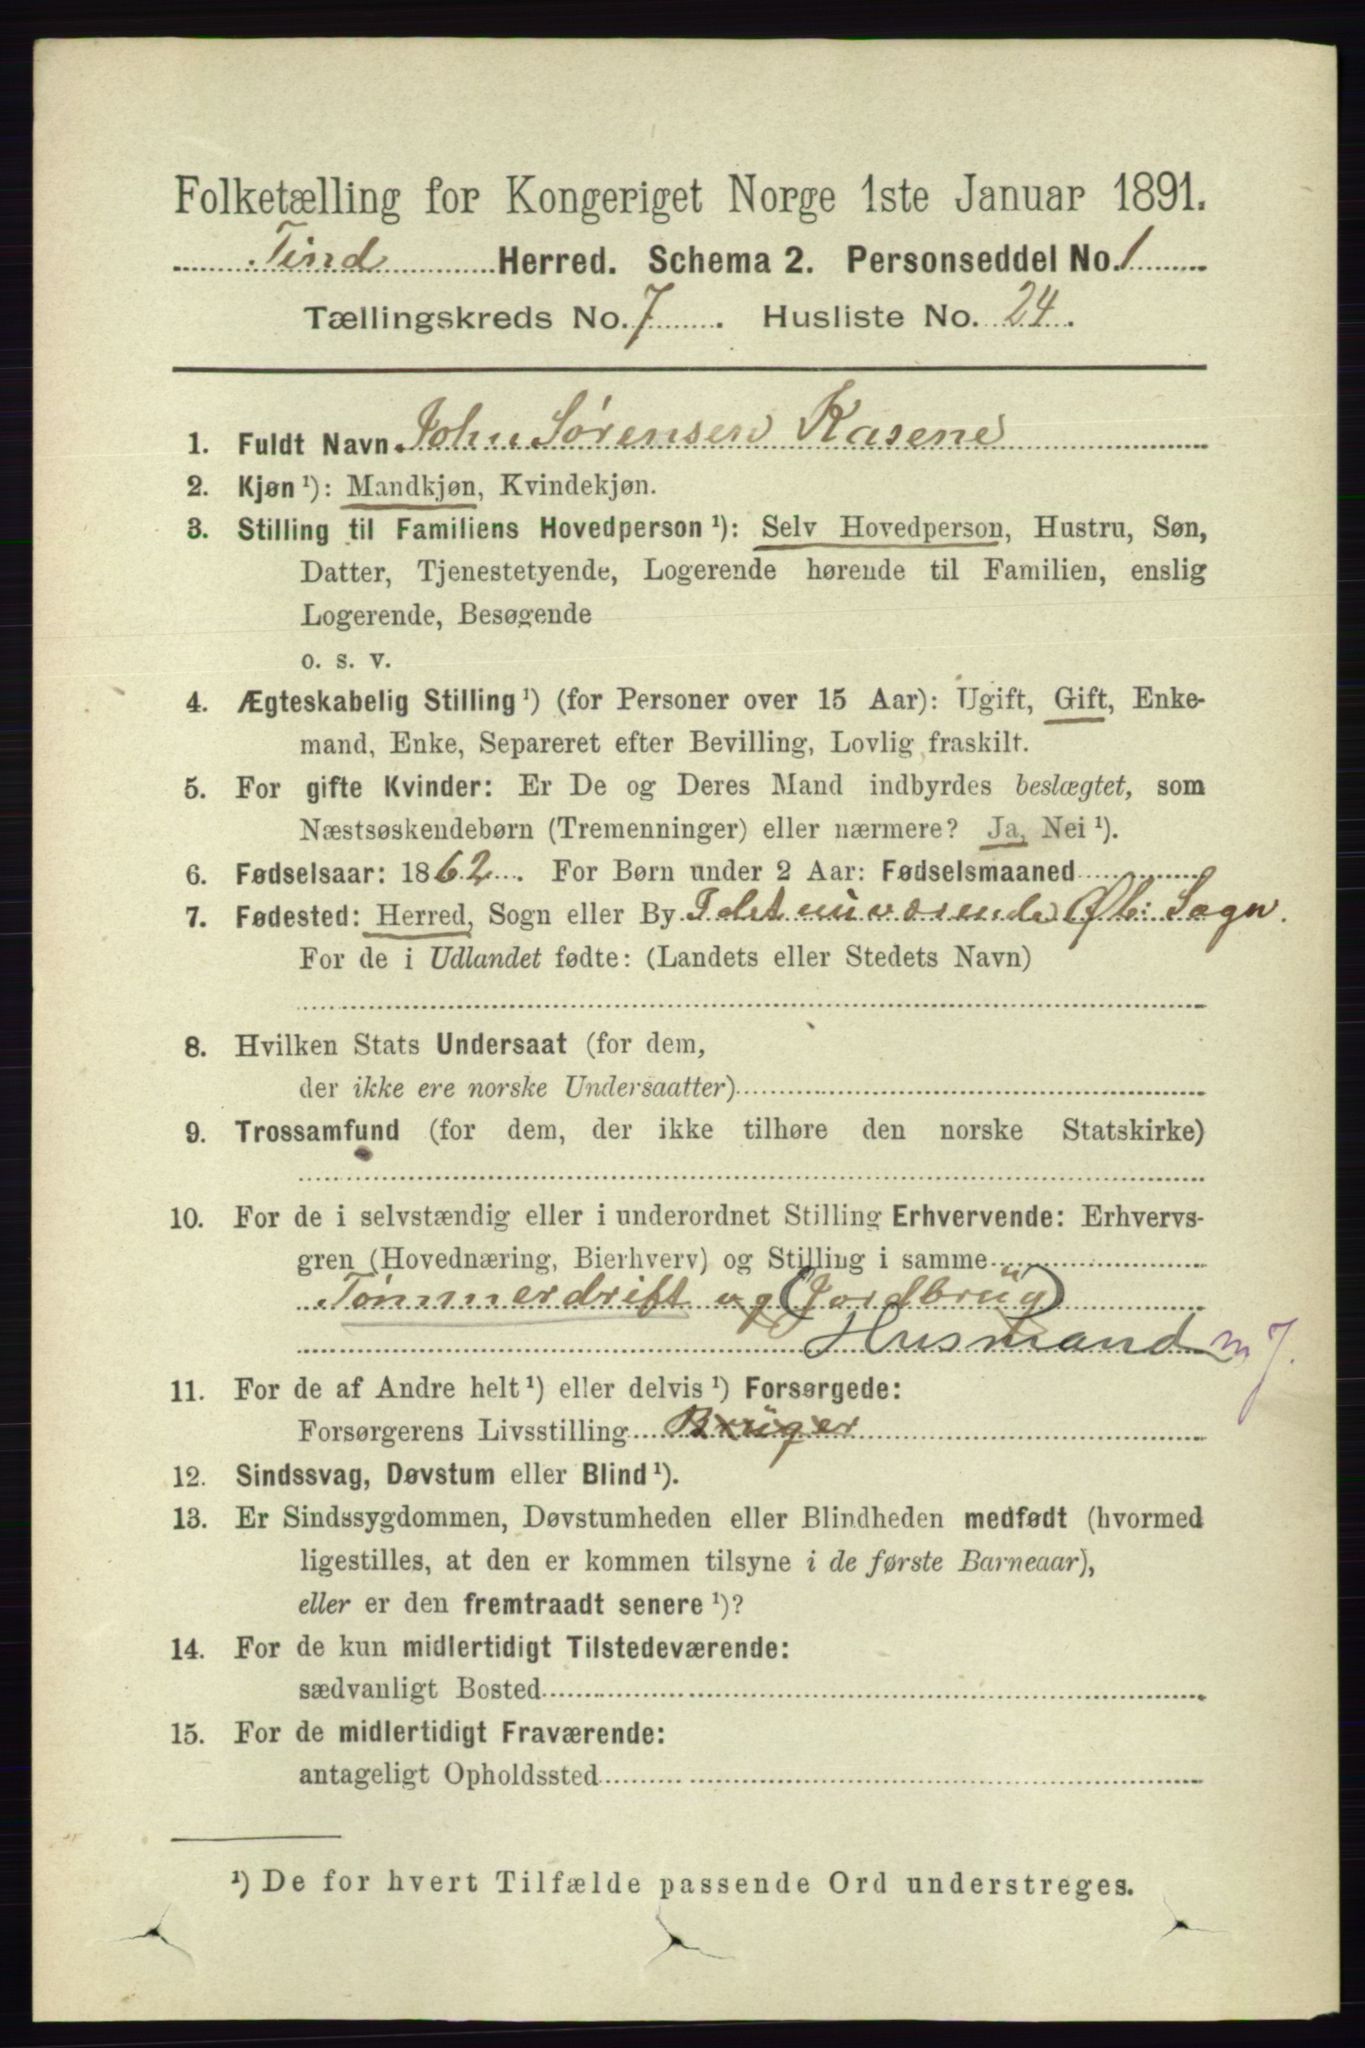 Folketælling for Kongeriget Norge 1ste Januar 1891.
Tind Herred. Schema 2. Personseddel No. 1
Tællingskreds No. 7. Husliste No. 24.
1. Fuldt Navn John Sørensen Kasene
2. Kjøn ¹): Mandkjøn, Kvindekjøn.
3. Stilling til Familiens Hovedperson ¹): Selv Hovedperson, Hustru, Søn,
Datter, Tjenestetyende, Logerende hørende til Familien, enslig
Logerende, Besøgende
o. s. v.
4. Ægteskabelig Stilling ¹) (for Personer over 15 Aar): Ugift, Gift, Enke-
mand, Enke, Separeret efter Bevilling, Lovlig fraskilt.
5. For gifte Kvinder: Er De og Deres Mand indbyrdes beslægtet, som
Næstsøskendebørn (Tremenninger) eller nærmere? Ja, Nei ¹).
6. Fødselsaar: 1862. For Børn under 2 Aar: Fødselsmaaned
7. Fødested: Herred, Sogn eller By I det nuværende Sogn.
For de i Udlandet fødte: (Landets eller Stedets Navn)
8. Hvilken Stats Undersaat (for dem,
der ikke ere norske Undersaatter)
9. Trossamfund (for dem, der ikke tilhøre den norske Statskirke)
10. For de i selvstændig eller i underordnet Stilling Erhvervende: Erhvervs-
gren (Hovednæring, Bierhverv) og Stilling i samme
Tømmerdrift og (Jordbrug)
Husmand m J.
11. For de af Andre helt ¹) eller delvis ¹) Forsørgede:
Forsørgerens Livsstilling Brüger
12. Sindssvag, Døvstum eller Blind ¹).
13. Er Sindssygdommen, Døvstumheden eller Blindheden medfødt (hvormed
ligestilles, at den er kommen tilsyne i de første Barneaar),
eller er den fremtraadt senere ¹)?
14. For de kun midlertidigt Tilstedeværende:
sædvanligt Bosted
15. For de midlertidigt Fraværende:
antageligt Opholdssted
¹) De for hvert Tilfælde passende Ord understreges.